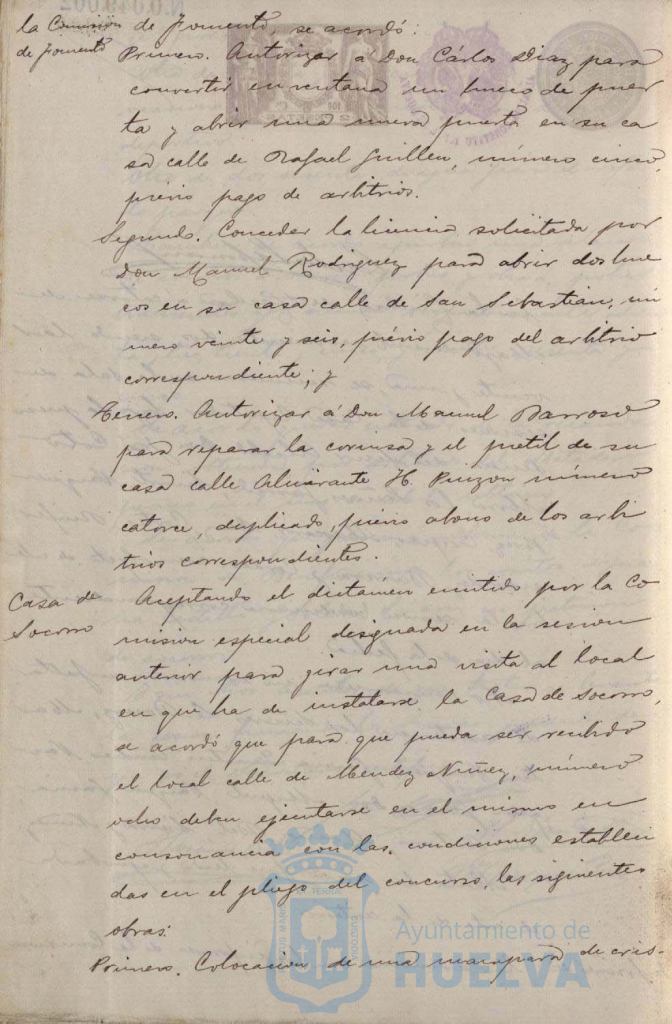 la Comisión de Fomento, se acordó:
de Fomento
Primero. Autorizar á Don Cárlos Diaz para
convertir en ventana un hueco de puer
ta y abrir una nueva puerta en su ca
sa calle de Rafael Guillen, número cinco,
prévio pago de arbitrios.
Segundo. Conceder la licencia solicitada por
Don Manuel Rodriguez para abrir dos hue
cos en su casa calle de San Sebastián, nú
mero veinte y seis, prévio pago del arbitrio
correspondiente; y
Tercero. Autorizar á Don Manuel Barroso
para reparar la cornisa y el pretil de su
casa calle Almirante H. Pinzon número
catorce, duplicado, prévio abono de los arbi
trios correspondientes.
Casa de
Socorro
Aceptando el dictámen emitido por la Co
mision especial designada en la sesion
anterior para girar una visita al local
en que ha de instalarse la Casa de Socorro,
se acordó que para que pueda ser recibido
el local calle de Mendez Nuñez, número
ocho deben ejecutarse en el mismo en
consonancia con las condiciones estableci
das en el pliego del concurso, las siguientes
obras:
Primero. Colocacion de una mampara de cris-
Ayuntamiento de
HUELVA